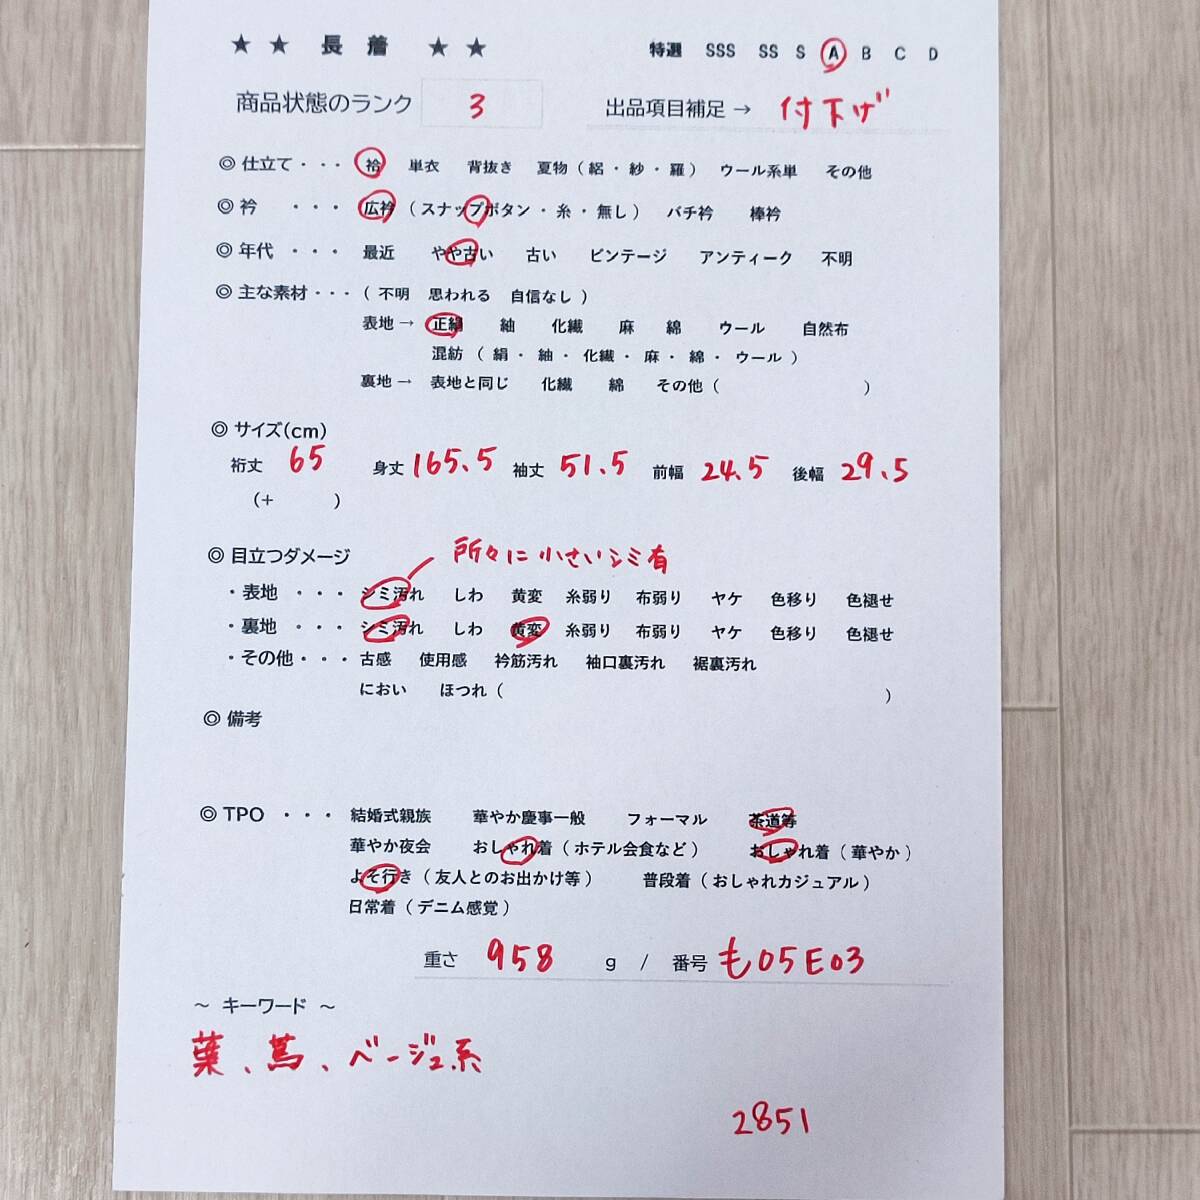 ★ ★ 長 着 ★ ★ 特選 SSS SS S A B C D
商品状態のランク 3 出品項目補足 → 付下げ
◎ 仕立て ・・・ 袷 単衣 背抜き 夏物 ( 絽 ・ 紗 ・ 羅 ) ウール系単 その他
◎ 衿 ・・・ 広衿 ( スナップボタン ・ 糸 ・ 無し ) バチ衿 棒衿
◎ 年代 ・・・ 最近 やや古い 古い ビンテージ アンティーク 不明
◎ 主な素材 ・・・ ( 不明 思われる 自信なし )
表地 → 正絹 紬 化繊 麻 綿 ウール 自然布
混紡 ( 絹 ・ 紬 ・ 化繊 ・ 麻 ・ 綿 ・ ウール )
裏地 → 表地と同じ 化繊 綿 その他 ( )
◎ サイズ(cm)
裄丈 65 身丈 165.5 袖丈 51.5 前幅 24.5 後幅 29.5
(+ )
◎ 目立つダメージ 所々に小さいシミ有
・表地 ・・・ シミ汚れ しわ 黄変 糸弱り 布弱り ヤケ 色移り 色褪せ
・裏地 ・・・ シミ汚れ しわ 黄変 糸弱り 布弱り ヤケ 色移り 色褪せ
・その他 ・・・ 古感 使用感 衿筋汚れ 袖口裏汚れ 裾裏汚れ
におい ほつれ ( )
◎ 備考
◎ TPO ・・・ 結婚式親族 華やか慶事一般 フォーマル 茶道等
華やか夜会 おしゃれ着 ( ホテル会食など ) おしゃれ着 ( 華やか )
よそ行き ( 友人とのお出かけ等 ) 普段着 ( おしゃれカジュアル )
日常着 ( デニム感覚 )
重さ 958 g / 番号 も05E03
～ キーワード ～
葉、蔦、ベージュ系
2851